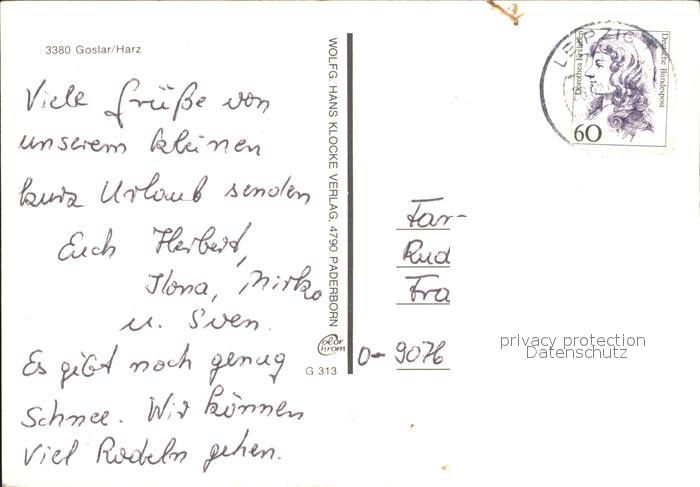 3380 Goslar/Harz
Viele Grüße von
unserem kleinen
kurz Urlaub senden
Euch Herbert,
Ilona, Mirko
u. Sven.
Es gibt noch genug
Schnee. Wir können
viel Rodeln gehen.
WOLFG. HANS KLOCKE VERLAG, 4790 PADERBORN
Color chrom
G 313
LEIPZIG
Deutsche Bundespost
60
Fam
Rud
Fra
O- 9076
privacy protection
Datenschutz